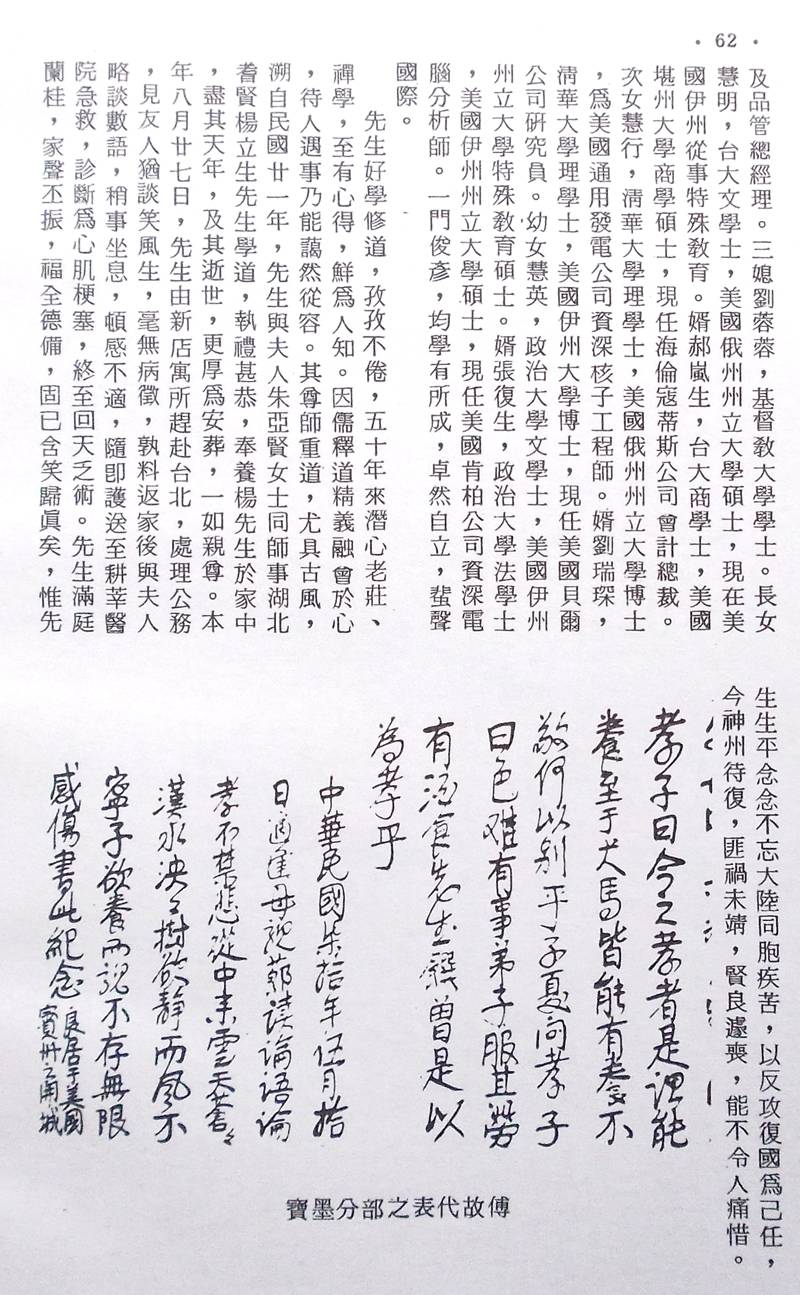 • 62 •
及品管總經理。三媳劉蓉蓉，基督教大學學士。長女
慧明，台大文學士，美國俄州州立大學碩士，現在美
國伊州從事特殊教育。婿郝嵐生，台大商學士，美國
堪州大學商學碩士，現任海倫寇蒂斯公司會計總裁。
次女慧行，淸華大學理學士，美國俄州州立大學博士
，爲美國通用發電公司資深核子工程師。婿劉瑞琛，
淸華大學理學士，美國伊州大學博士，現任美國貝爾
公司硏究員。幼女慧英，政治大學文學士，美國伊州
州立大學特殊敎育碩士。婿張復生，政治大學法學士
，美國伊州州立大學碩士，現任美國肯柏公司資深電
腦分析師。一門俊彥，均學有所成，卓然自立，蜚聲
國際。
先生好學修道，孜孜不倦，五十年來潛心老莊、
禪學，至有心得，鮮爲人知。因儒釋道精義融會於心
，待人遇事乃能藹然從容。其尊師重道，尤具古風，
溯自民國廿一年，先生與夫人朱亞賢女士同師事湖北
耆賢楊立生先生學道，執禮甚恭，奉養楊先生於家中
，盡其天年，及其逝世，更厚爲安葬，一如親尊。本
年八月廿七日，先生由新店寓所趕赴台北，處理公務
，見友人猶談笑風生，毫無病徵，孰料返家後與夫人
略談數語，稍事坐息，頓感不適，隨即護送至耕莘醫
院急救，診斷爲心肌梗塞，終至回天乏術。先生滿庭
蘭桂，家聲丕振，福全德備，固已含笑歸眞矣，惟先
生生平念念不忘大陸同胞疾苦，以反攻復國爲己任，
今神州待復，匪禍未靖，賢良遽喪，能不令人痛惜。
孝子曰今之孝者是謂能
養至于犬馬皆能有養不
敬何以別乎子夏问孝子
曰色难有事弟子服其勞
有酒食先生饌曾是以
為孝乎
中華民國柒拾年伍月拾
日適逢母親節讀論语論
孝不禁悲從中来雲天蒼々
漢水泱々樹欲静而風不
寧子欲養而親不存無限
感傷書此紀念
良居于美國
賓州之南城
傅故代表之部分墨寶